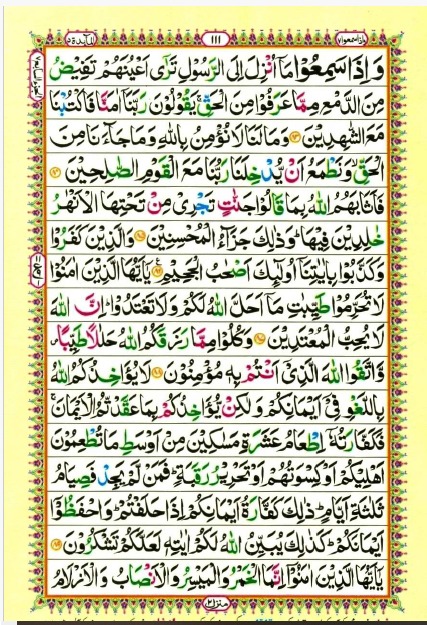 واذاسمعوا٧ ١١١ المآئدة٥
وَ اِذَا سَمِعُوْا مَاۤ اُنْزِلَ اِلَى الرَّسُوْلِ تَرٰۤى اَعْیُنَهُمْ تَفِیْضُ
مِنَ الدَّمْعِ مِمَّا عَرَفُوْا مِنَ الْحَقِّ ۚ یَقُوْلُوْنَ رَبَّنَاۤ اٰمَنَّا فَاكْتُبْنَا
مَعَ الشّٰهِدِیْنَ ﴿۸۳﴾ وَمَا لَنَا لَا نُؤْمِنُ بِاللّٰهِ وَمَا جَآءَنَا مِنَ
الْحَقِّ ۙ وَنَطْمَعُ اَنْ یُّدْخِلَنَا رَبُّنَا مَعَ الْقَوْمِ الصّٰلِحِیْنَ ﴿۸۴﴾
فَاَثَابَهُمُ اللّٰهُ بِمَا قَالُوْا جَنّٰتٍ تَجْرِیْ مِنْ تَحْتِهَا الْاَنْهٰرُ
خٰلِدِیْنَ فِیْهَا ؕ وَذٰلِكَ جَزَآءُ الْمُحْسِنِیْنَ ﴿۸۵﴾ وَالَّذِیْنَ كَفَرُوْا
وَكَذَّبُوْا بِاٰیٰتِنَاۤ اُولٰٓئِكَ اَصْحٰبُ الْجَحِیْمِ ﴿۸۶﴾ یٰۤاَیُّهَا الَّذِیْنَ اٰمَنُوْا
لَا تُحَرِّمُوْا طَیِّبٰتِ مَاۤ اَحَلَّ اللّٰهُ لَكُمْ وَلَا تَعْتَدُوْا ؕ اِنَّ اللّٰهَ
لَا یُحِبُّ الْمُعْتَدِیْنَ ﴿۸۷﴾ وَكُلُوْا مِمَّا رَزَقَكُمُ اللّٰهُ حَلٰلًا طَیِّبًا ۪
وَّاتَّقُوا اللّٰهَ الَّذِیْۤ اَنْتُمْ بِهٖ مُؤْمِنُوْنَ ﴿۸۸﴾ لَا یُؤَاخِذُكُمُ اللّٰهُ
بِاللَّغْوِ فِیْۤ اَیْمَانِكُمْ وَلٰكِنْ یُّؤَاخِذُكُمْ بِمَا عَقَّدْتُّمُ الْاَیْمَانَ ۚ
فَكَفَّارَتُهٗۤ اِطْعَامُ عَشَرَةِ مَسٰكِیْنَ مِنْ اَوْسَطِ مَا تُطْعِمُوْنَ
اَهْلِیْكُمْ اَوْ كِسْوَتُهُمْ اَوْ تَحْرِیْرُ رَقَبَةٍ ؕ فَمَنْ لَّمْ یَجِدْ فَصِیَامُ
ثَلٰثَةِ اَیَّامٍ ؕ ذٰلِكَ كَفَّارَةُ اَیْمَانِكُمْ اِذَا حَلَفْتُمْ ؕ وَاحْفَظُوْۤا
اَیْمَانَكُمْ ؕ كَذٰلِكَ یُبَیِّنُ اللّٰهُ لَكُمْ اٰیٰتِهٖ لَعَلَّكُمْ تَشْكُرُوْنَ ﴿۸۹﴾
یٰۤاَیُّهَا الَّذِیْنَ اٰمَنُوْۤا اِنَّمَا الْخَمْرُ وَالْمَیْسِرُ وَالْاَنْصَابُ وَالْاَزْلَامُ
منزل٢